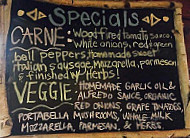 Specials
CARNE: Wood fired tomato sauce,
white onions, red & green
bell peppers, homemade sweet
Italian sausage, mozzarella, parmesan
& finished w/ herbs!
VEGGIE: HOMEMADE GARLIC OIL &
ALFREDO SAUCE, ORGANIC
RED ONIONS, GRAPE TOMATOES
PORTABELLA MUSHROOMS, WHOLE MILK
MOZZARELLA, PARMESAN, & HERBS.